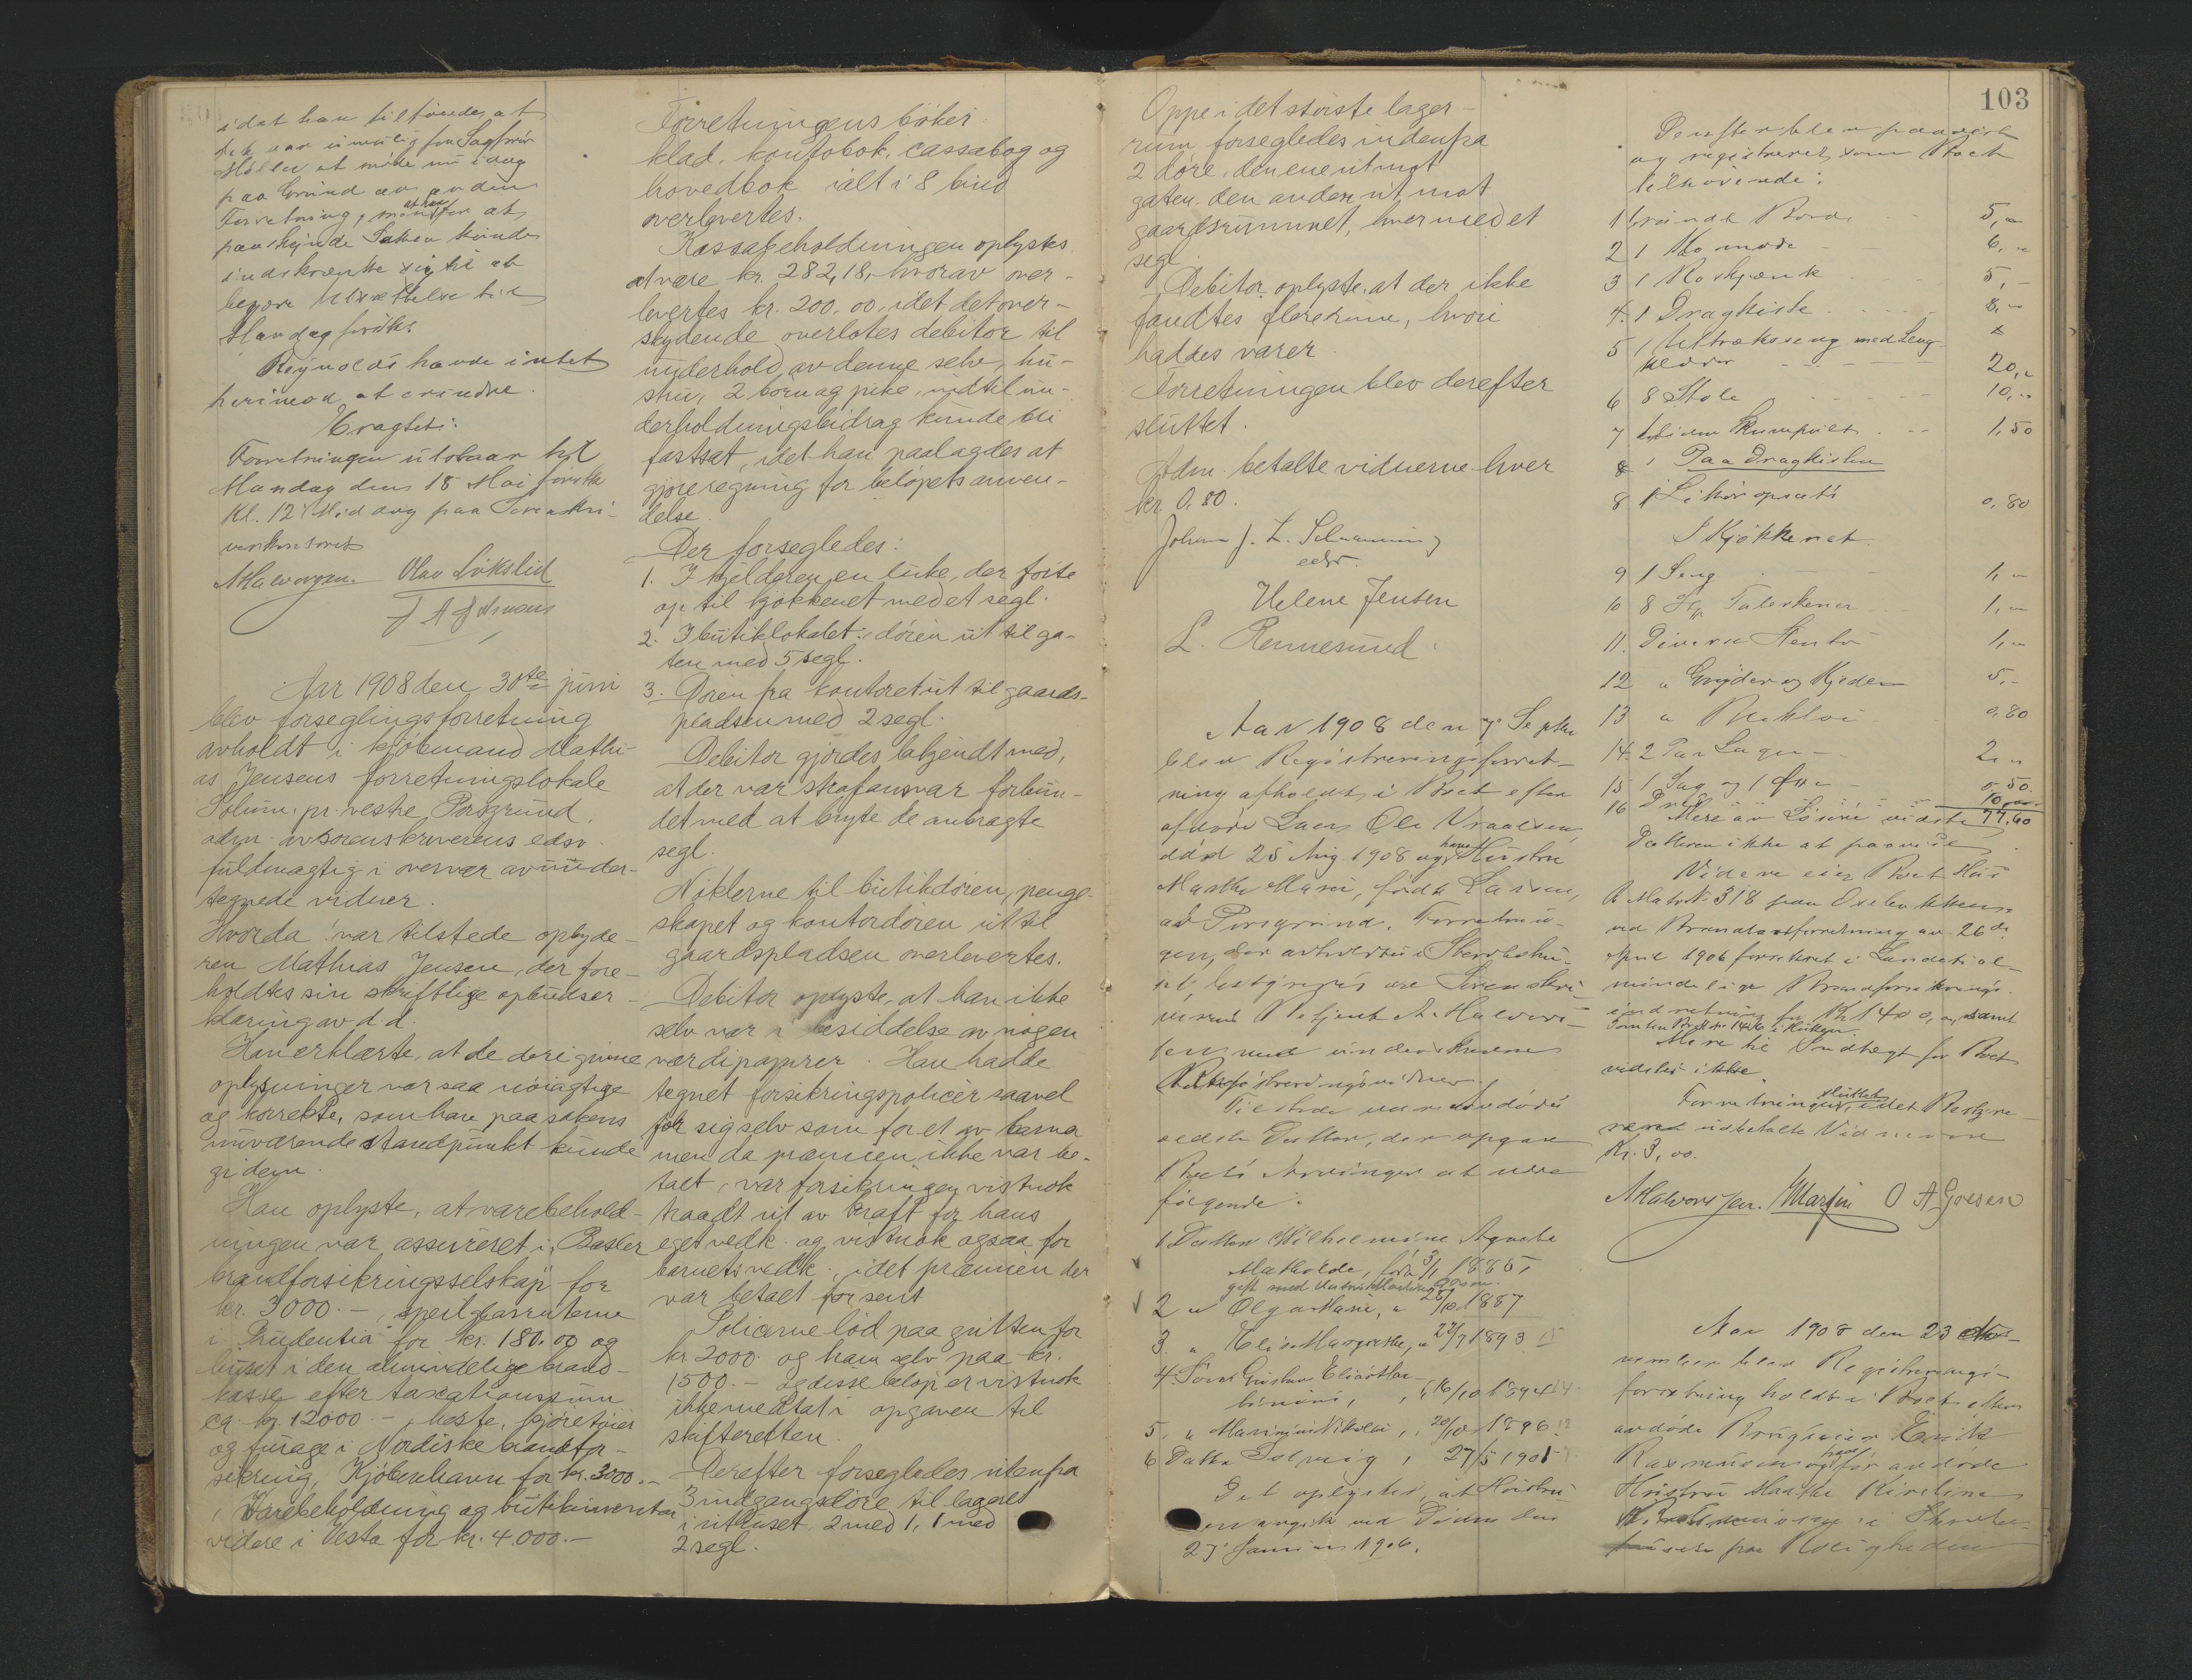 idet han tilföiede, at
det var umulig for Sagförer
Möller at möte nu idag
paa Grund av anden
Forretning, mente at
paaskjönde Saken kunde
indskrænke sig til at
begjære Utsættelse til
Mandag förstk.
Reynolds havde intet
herimod at erindre.
Eragtet:
Forretningen utstaar til
Mandag den 18 Mai förstk
Kl. 12 Middag paa Sorenskri-
verkontoret
AHalvorsen. Olav Lökslid
Aar 1908 den 30te juni
blev forseglingsforretning
avholdt i kjöbmand Mathi-
as Jensens forretningslokale
Solum pr. vestre Porsgrund.
adm. av sorenskriverens edsv.
fuldmægtig i overvær av under-
tegnede vidner.
Hvorda var tilstede opbyde-
ren Mathias Jensen, der fore-
holdtes sin skriftlige opbudser-
klæring av d.d.
Han erklærte, at de deri givne
oplysninger var saa nöiagtige
og korrekte, som han paa sakens
nuværende standpunkt kunde
gi dem.
Han oplyste, at varebehold-
ningen var assureret i "Basler
brandforsikringsselskap" for
kr. 3000.-, speilglasruterne
i "Prudentia" for kr. 180.00 og
huset i den almindelige brand-
kasse efter taxationssum
ca. kr. 12000.-, heste, kjöretöier
og furage i Nordiske brandfor-
sikring, Kjöbenhavn for kr. 3000.-
Varebeholdning og butikinventar
videre i Vesta for kr. 4.000.-
Forretningens böker
klad, kontobok, cassabog og
hovedbok ialt i 8 bind
overlevertes.
Kassabeholdningen oplystes
at være kr. 282,18, hvorav over-
levertes kr. 200.00, idet det over-
skydende overlotes debitor til
underhold av denne selv, hu-
stru, 2 börn og pike, indtil un-
derholdningsbidrag kunde bli
fastsat, idet han paalagdes at
gjöre regning for belöpets anven-
delse.
Der forsegledes:
1. I kjelderen en luke, der förte
op til kjökkenet med et segl.
2. I butiklokalet: dören ut til ga-
ten med 5 segl.
3. Dören fra kontoret ut til gaards-
pladsen med 2 segl.
Debitor gjordes bekjendt med,
at der var strafansvar forbun-
det med at bryte de anbragte
segl.
Nöklerne til butikdören, penge-
skapet og kontordören ut til
gaardspladsen overlevertes.
Debitor oplyste, at han ikke
selv var i besiddelse av nogen
værdipapirer. Han hadde
tegnet forsikringspolicer saavel
for sig selv som for et av barna
men da præmien ikke var be-
talt, var forsikringen vistnok
traadt ut av kraft for hans
eget vedk. og vistnok ogsaa for
barnets vedk., idet præmien der
var betalt for sent
Policerne löd paa gutten for
kr. 2000 og ham selv paa kr.
1500.- og disse belöp er vistnok
ikke medtat i opgaven til
skifteretten.
Derefter forsegledes utenfra
3 indgangsdöre til lageret
i uthuset, 2 med 1, 1 med
2 segl.
103
Oppe i det störste lager-
rum forsegledes indenfra
2 döre, den ene ut mot
gaten, den anden ut mot
gaardsrummet, hver med et
segl.
Debitor oplyste, at der ikke
fandtes flere rum, hvori
haddes varer.
Forretningen blev derefter
sluttet.
Adm. betalte vidnerne hver
kr 0,80.
Johan J. L.
edsv.
Helene Jensen
L. Rennesund.
Aar 1908 den 7 Septbr
blev Registreringsforret-
ning afholdt i Boet efter
afdöde Lars Ole Vraalsen,
död 25 Aug. 1908 og hans Hustru
Marthe Marie, födt Larsen,
av Porsgrund. Forretnin-
gen, der avholdtes i Sterbohu-
set, bestyredes av Sorenskri-
verens Betjent A. Halvor-
sen med underskrevne
Registreringsvidner.
Tilstede var avdödes
ældste Datter, der opgav
Boets Arvinger at være
fölgende:
1 Datter Wilhelmine Agnethe
Mathilde, född 3/1 1885,
2 " Olga Marie, " 28/10 1887
3. " Elise Margrethe, " 27/7 1893 15
4. Sön Gustav Elias Mar-
tinius, " 16/10 1894 14
5. " Marinius Nikolai, " 20/10 1896 12
6 Datter Solveig, 27/5 1901
Det oplystes, at Hustru-
en avgik ved Döden den
27 Januar 1906.
Derefter blev paavist
og registreret som Boet
tilhörende:
1 1 rundt Bord 5,"
2 1 Komode 6,"
3 1 Roskjænk 5,-
4. 1 Dragkiste 8,"
5 1 Utræksseng med Seng-
klæder 20,"
6 8 Stole 10,"
7 1,50
8 1 Paa Dragkisten
8 1 Likör opsats 0,80
I Kjökkenet.
9 1 Seng 1,"
10 8 St. Talerkener 1,"
11. Diverse Stentöi 1,"
12 " Gryder og Kjedler 5,-
13 " Bliktöi 0,80
14. 2 Par Lagen 2,"
15 1 Sag og 1 Öxe 0,50
16 10,00
Mere av Lösöre vidste 77,60
Datteren ikke at paavise.
Videre eier Boet Hus
A Matr. No 318 paa Osebakken,
ved Brandtaxtforretning av 26de
April 1906 forsikret i Landets al-
mindelige Brandforsikrings-
indretning for Kr 1400,00, samt
Tomten Br. No 1426 i Hullen.
Mere til Indtægt for Boet
vidstes ikke.
Forretningen sluttet, idet Besty-
reren udbetalte Vidnerne
Kr. 3,00.
AHalvorsen. Martin O A Goesen
Aar 1908 den 23 No-
vember blev Registrerings-
forretning holdt i Boet efter
avdöde Brugseier
Rasmussen og hans för avdöde
Hustru Maathe Kirstine
Forretningen i Sterbo-
huset paa Roligheden